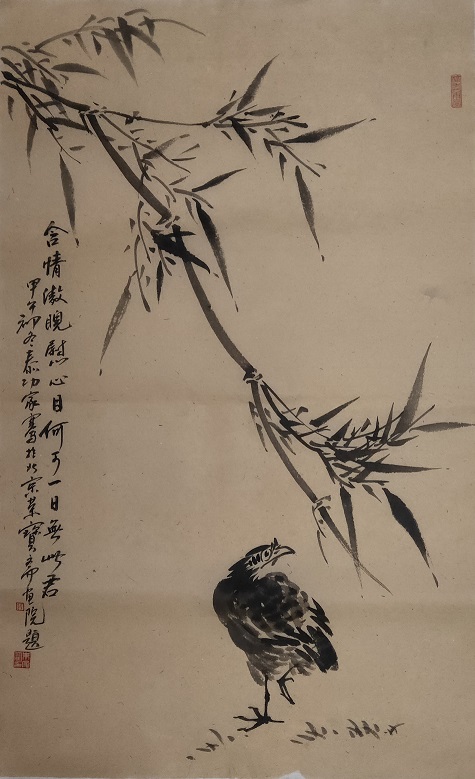 含情傲睨慰心目何可一日無此君
甲午初冬泰功家寫於北京榮寶齋畫院題